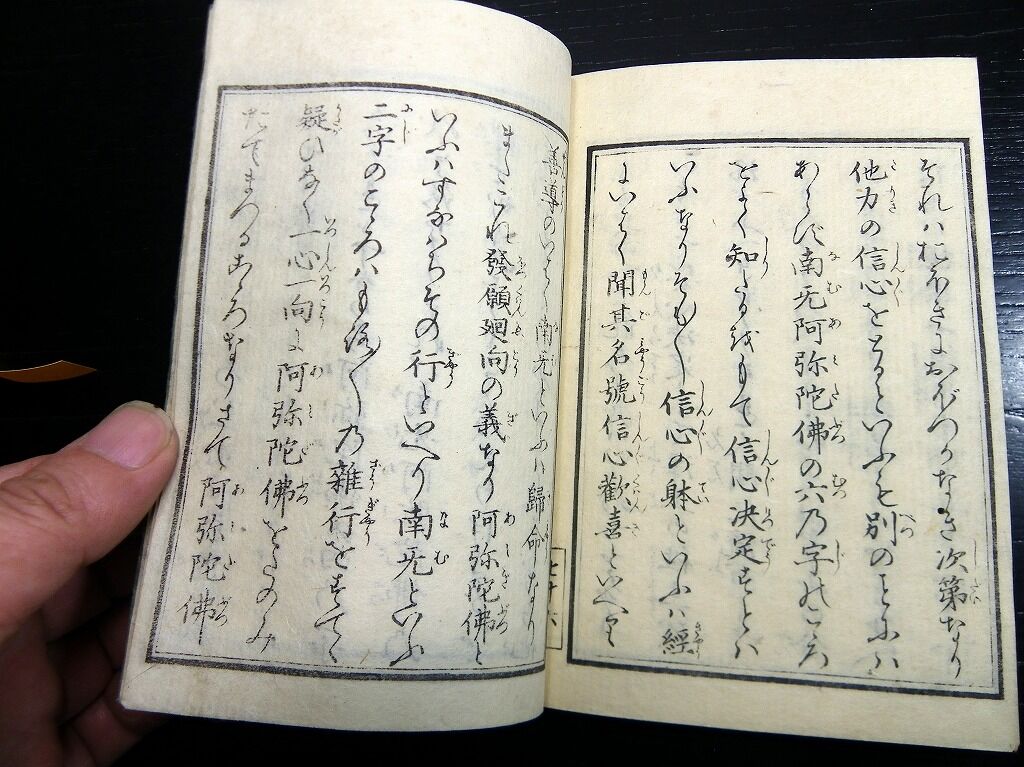 それハおほきにおぼつかなき次第なり
他力の信心をとるといふも別のことにハ
あらず南无阿弥陀佛の六乃字のこゝろ
をよく知たるをもて信心决定すとハ
いふなりそも〱信心の躰といふハ經
にいはく聞其名號信心歡喜といへり
善導のいはく南无といふハ歸命なり
またこれ發願廻向の義なり阿弥陀佛と
いふハすなハちその行といへり南无といふ
二字のこゝろハもろ〱乃雜行をすてゝ
疑ひなく一心一向に阿弥陀佛をたのみ
たてまつるこゝろなりさて阿弥陀佛